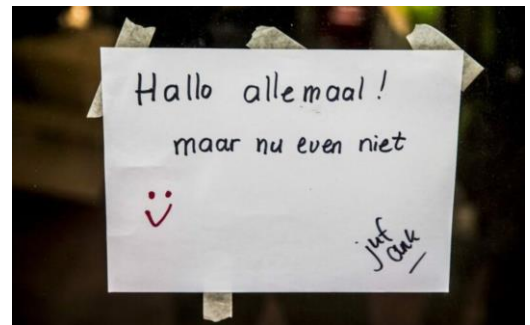 Hallo allemaal!
maar nu even niet
juf
ank